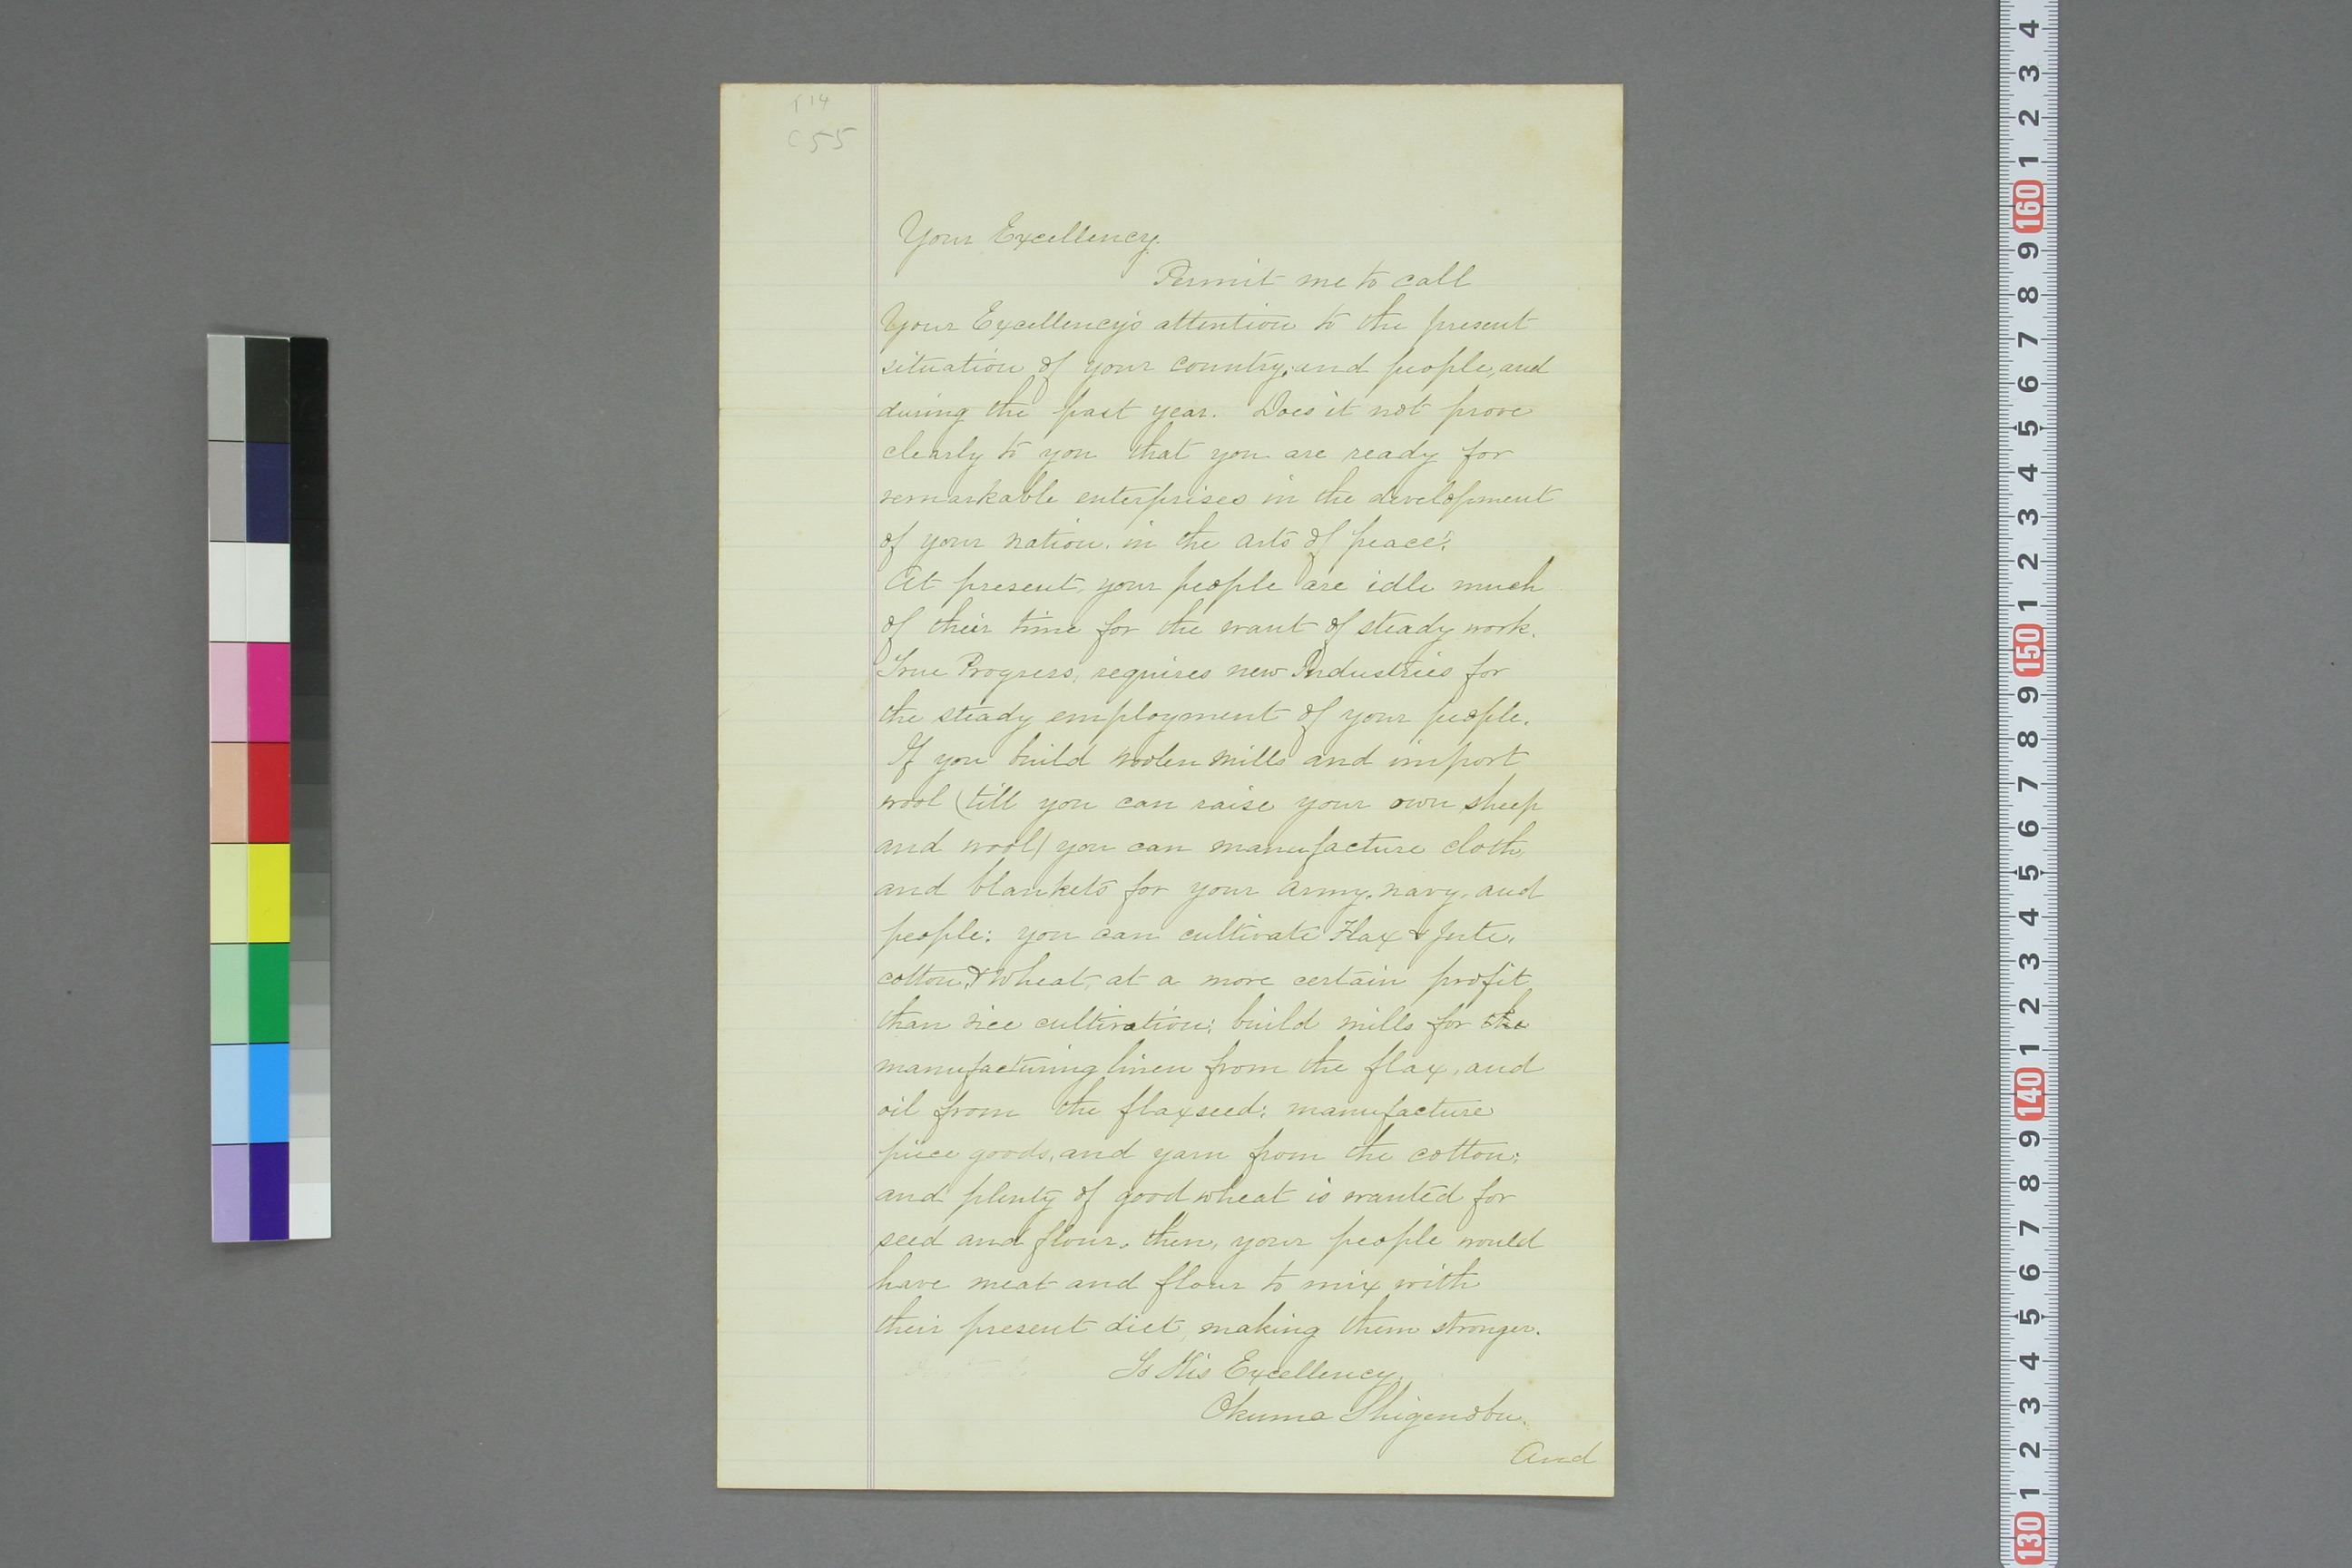 T14
C55
Your Excellency.
Permit me to call
Your Excellency's attention to the present
situation of your country, and people, and
during the past year. Does it not prove
clearly to you that you are ready for
remarkable enterprises in the development
of your nation, in the arts of peace?
At present, your people are idle much
of their time for the want of steady work.
True Progress, requires new Industries for
the steady employment of your people.
If you build woolen mills and import
wool (till you can raise your own sheep
and wool) you can manufacture cloth
and blankets for your army, navy, and
people: you can cultivate Flax & Jute,
cotton, & wheat, at a more certain profit
than rice cultivation: build mills for the
manufacturing linen from the flax, and
oil from the flaxseed: manufacture
piece goods, and yarn from the cotton:
and plenty of good wheat is wanted for
seed and flour. then, your people would
have meat and flour to mix with
their present diet, making them stronger.
To His Excellency,
Okuma Shigenobu.
And
4
3
2
1
160
9
8
7
6
5
4
3
2
1
150
9
8
7
6
5
4
3
2
1
140
9
8
7
6
5
4
3
2
1
130